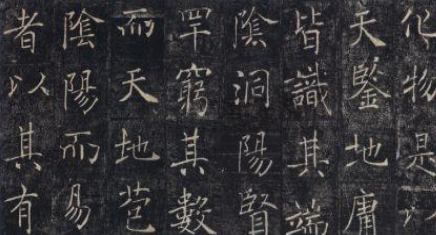 化物是以
天鑒地庸
皆識其端
陰洞陽賢
罕窮其數
而天地苞
陰陽而易
者以其有